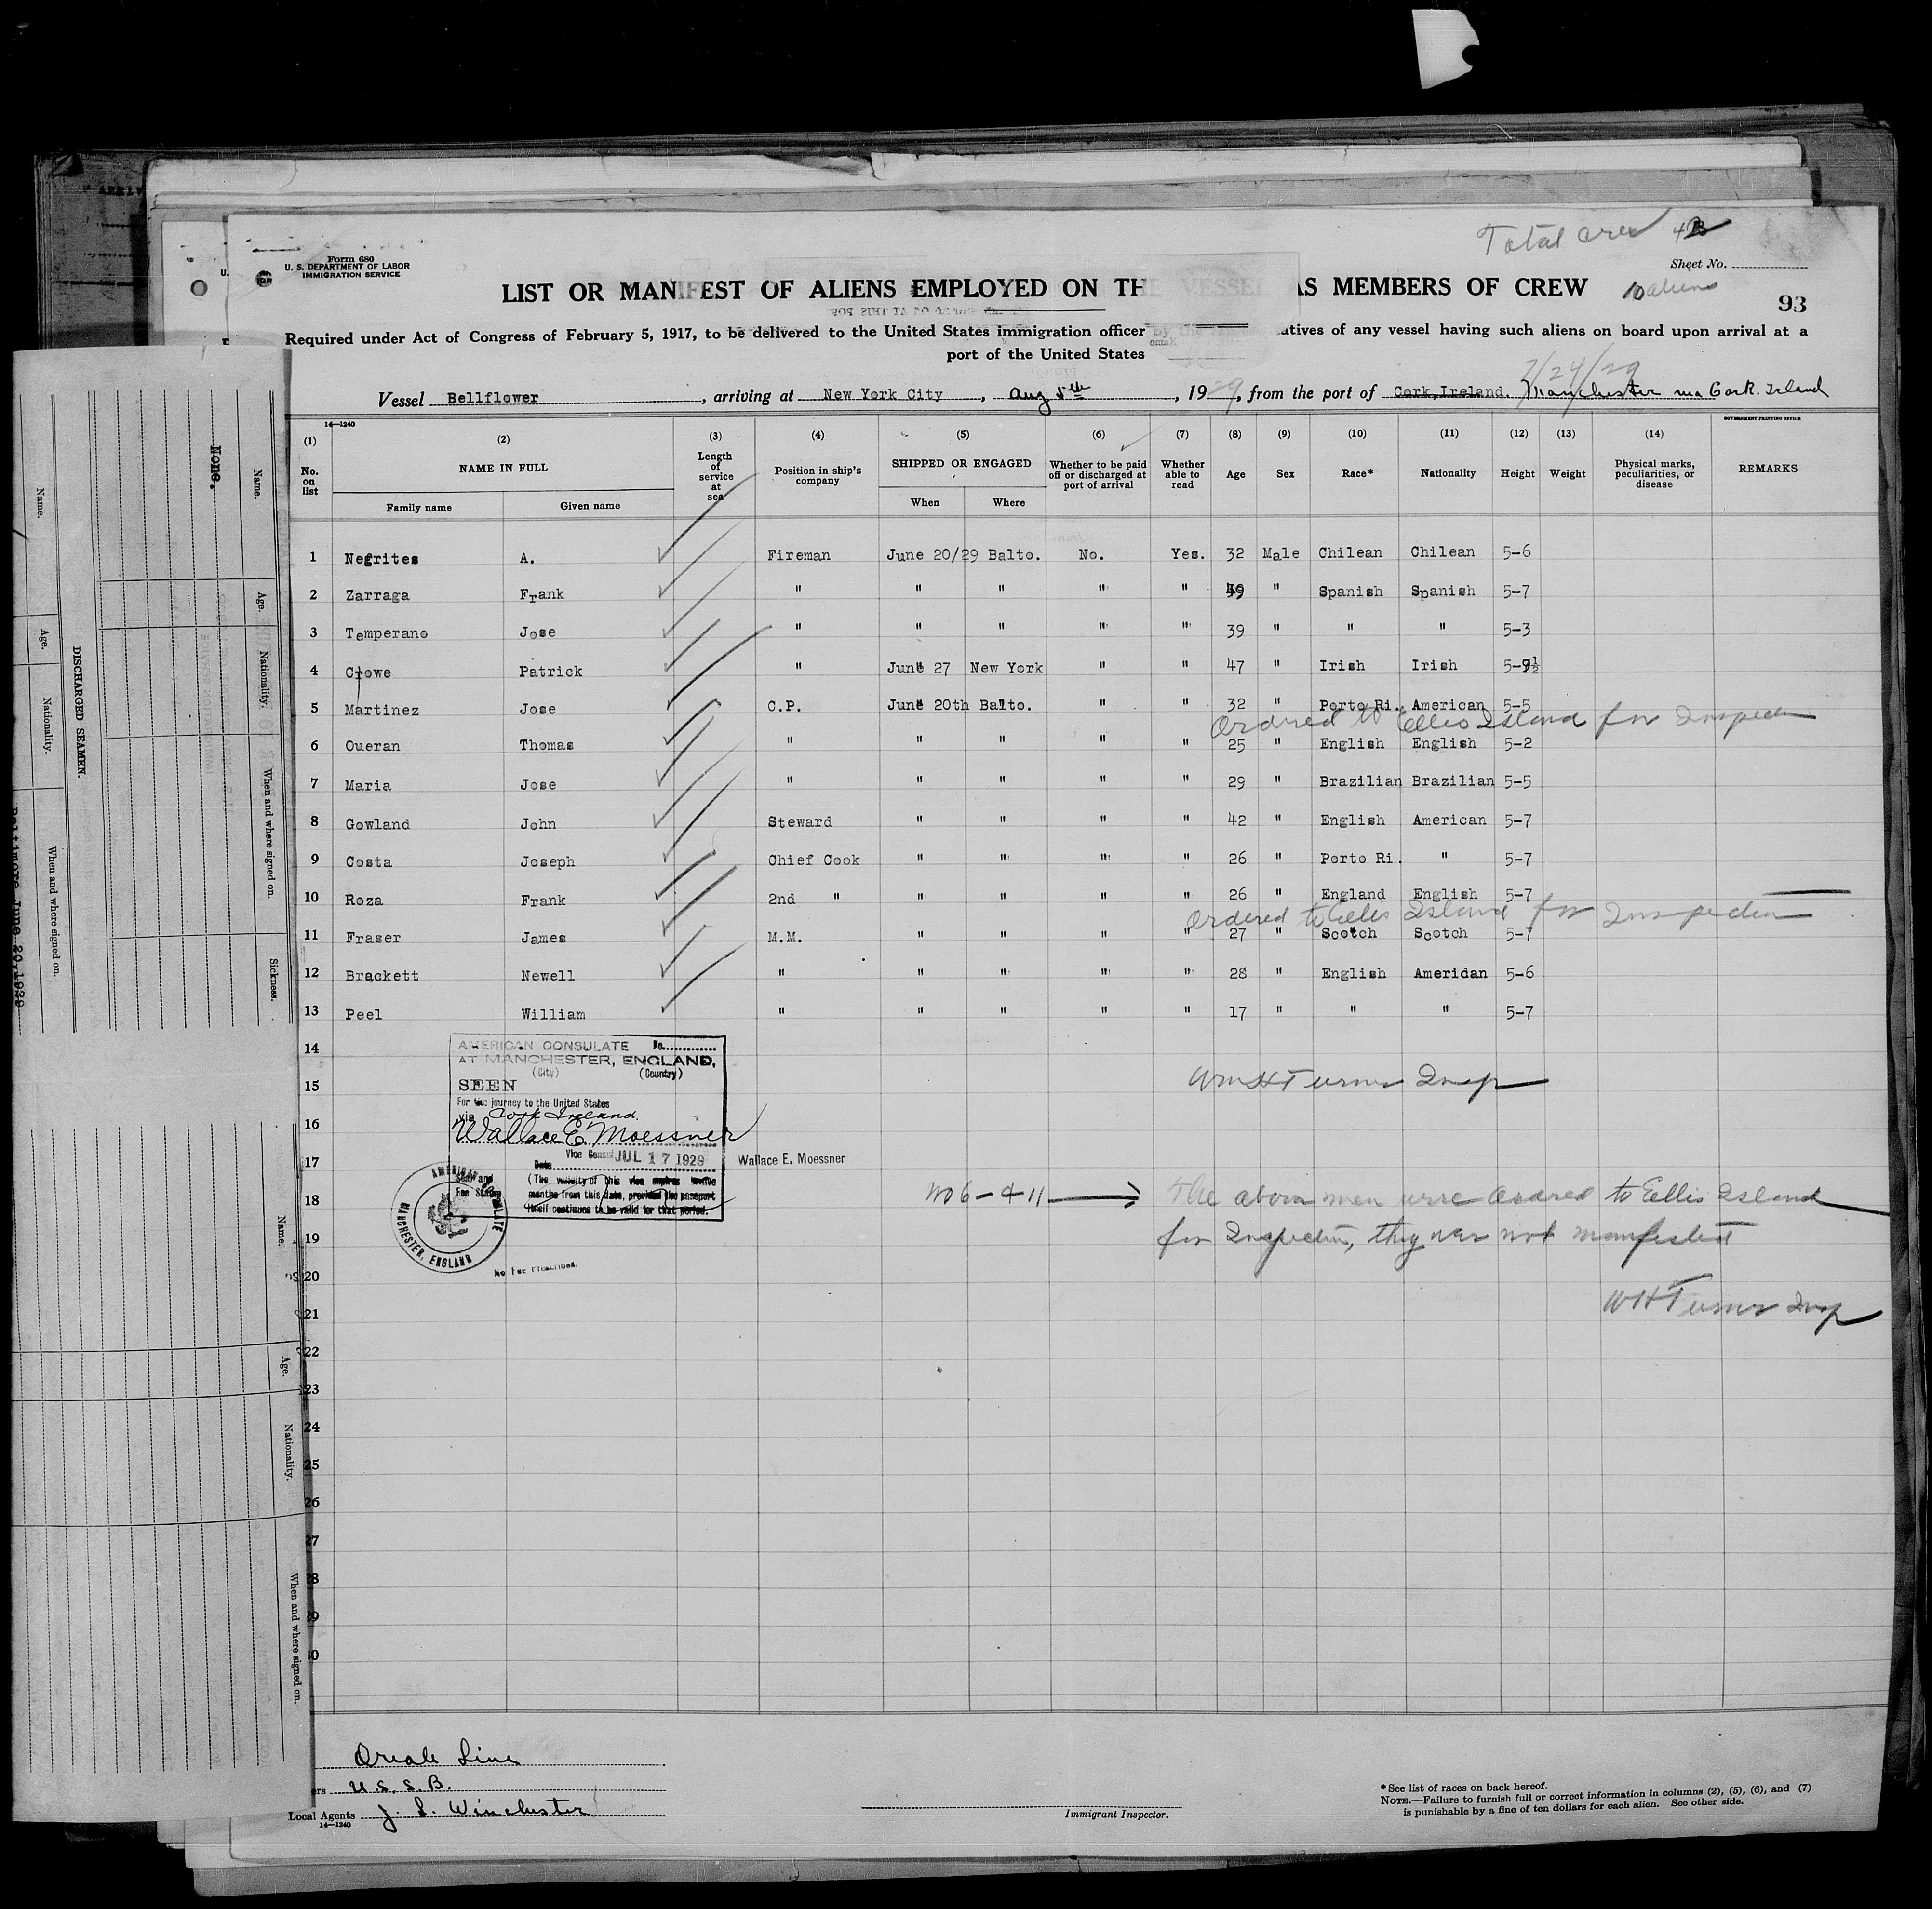 Total crew
Form 680
U. S. DEPARTMENT OF LABOR
IMMIGRATION SERVICE
Sheet No.
LIST OR MANIFEST OF ALIENS EMPLOYED ON THE VESSEL AS MEMBERS OF CREW
10 aliens
93
Required under Act of Congress of February 5, 1917, to be delivered to the United States immigration officer by the atives of any vessel having such aliens on board upon arrival at a
port of the United States
7/24/29
Vessel Bellflower, arriving at New York City, Aug 5th, 1929, from the port of Cork, Ireland. Manchester via Cork. Ireland
14—1240
GOVERNMENT PRINTING OFFICE
(1) (2) (3) (4) (5) (6) (7) (8) (9) (10) (11) (12) (13) (14)
No. on list NAME IN FULL Length of service at sea Position in ship's company SHIPPED OR ENGAGED Whether to be paid off or discharged at port of arrival Whether able to read Age Sex Race* Nationality Height Weight Physical marks, peculiarities, or disease REMARKS
Family name Given name When Where
1 Negrites A. Fireman June 20/29 Balto. No. Yes. 32 Male Chilean Chilean 5-6
2 Zarraga Frank " " " " " 39 " Spanish Spanish 5-7
3 Temperano Jose " " " " " 39 " " " 5-3
4 Crowe Patrick " June 27 New York " " 47 " Irish Irish 5-9½
5 Martinez Jose C.P. June 20th Balto. " " 32 " Porto Ri. American 5-5
Ordered to Ellis Island for Inspection
6 Oueran Thomas " " " " " 25 " English English 5-2
7 Maria Jose " " " " " 29 " Brazilian Brazilian 5-5
8 Gowland John Steward " " " " 42 " English American 5-7
9 Costa Joseph Chief Cook " " " " 26 " Porto Ri. " 5-7
10 Roza Frank 2nd " " " " " 26 " England English 5-7
Ordered to Ellis Island for Inspection
11 Fraser James M.M. " " " " 27 " Scotch Scotch 5-7
12 Brackett Newell " " " " " 28 " English Ameridan 5-6
13 Peel William " " " " " 17 " " " 5-7
14
15
16
17
18
19
20
21
22
23
24
25
26
27
28
29
30
AMERICAN CONSULATE No.
AT MANCHESTER, ENGLAND,
(City) (Country)
SEEN
For the journey to the United States
via Cork Ireland.
Wallace E. Moessner
Vice Consul
Date JUL 17 1929
Wallace E. Moessner
Seal and
Fee Stamp
(The validity of this visa expires twelve
months from this date, provided the passport
itself continues to be valid for that period.
AMERICAN CONSULATE
MANCHESTER, ENGLAND
No Fee Prescribed.
Wm H Turner Insp
No 6 - & 11 The above men were ordered to Ellis Island
for Inspection, they was not manifested
W H Turner Insp
Oreale Line
ers U.S.S.B.
Local Agents J. L. Winchester
14—1240
Immigrant Inspector.
*See list of races on back hereof.
NOTE.—Failure to furnish full or correct information in columns (2), (5), (6), and (7)
is punishable by a fine of ten dollars for each alien. See other side.
DISCHARGED SEAMEN.
Name. Age. Nationality. When and where signed on.
Baltimore June 20, 1929
None.
Name. Age. Nationality. When and where signed on. Sickness.
Name. Age. Nationality. When and where signed on.